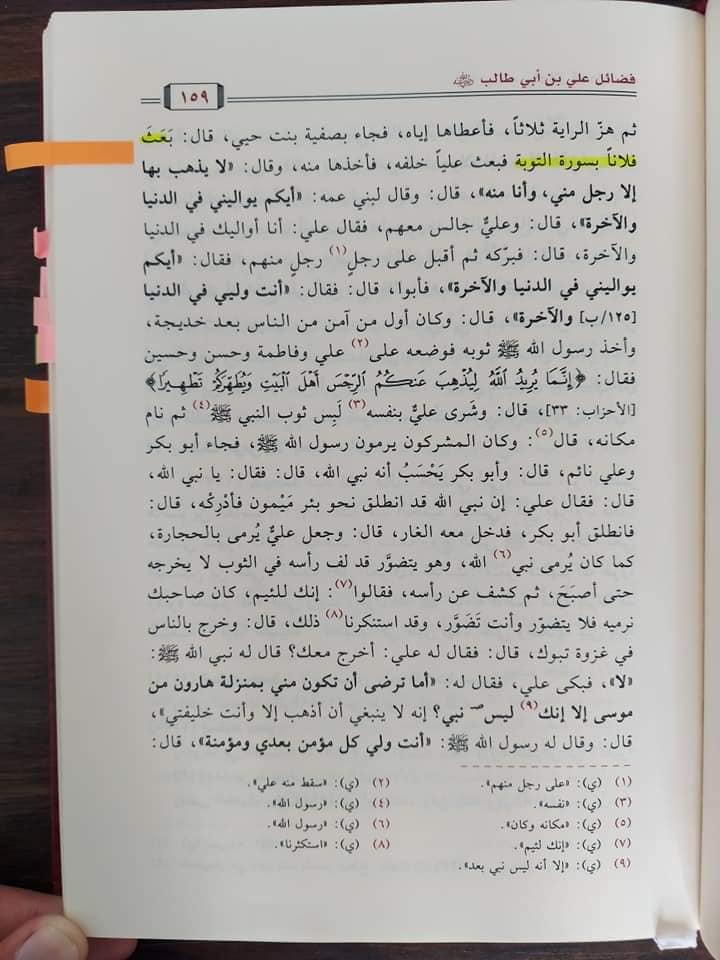 فضائل علي بن أبي طالب ﵁
١٥٩
ثم هزّ الراية ثلاثاً، فأعطاها إياه، فجاء بصفية بنت حيي، قال: بَعَثَ
فلاناً بسورة التوبة فبعث علياً خلفه، فأخذها منه، وقال: «لا يذهب بها
إلا رجل مني، وأنا منه»، قال: وقال لبني عمه: «أيكم يواليني في الدنيا
والآخرة»، قال: وعليٌّ جالس معهم، فقال علي: أنا أواليك في الدنيا
والآخرة، قال: فبرّكه ثم أقبل على رجلٍ(١) رجلٍ منهم، فقال: «أيكم
يواليني في الدنيا والآخرة»، فأبوا، قال: فقال: «أنت وليي في الدنيا
[١٢٥/ب] والآخرة»، قال: وكان أول من آمن من الناس بعد خديجة،
وأخذ رسول الله ﷺ ثوبه فوضعه على(٢) علي وفاطمة وحسن وحسين
فقال: ﴿إِنَّمَا يُرِيدُ اللَّهُ لِيُذْهِبَ عَنكُمُ الرِّجْسَ أَهْلَ الْبَيْتِ وَيُطَهِّرَكُمْ تَطْهِيرًا﴾
[الأحزاب: ٣٣]، قال: وشَرى عليٌّ بنفسه(٣) لَبِس ثوب النبي ﷺ(٤) ثم نام
مكانه، قال(٥): وكان المشركون يرمون رسول الله ﷺ، فجاء أبو بكر
وعلي نائم، قال: وأبو بكر يَحْسَبُ أنه نبي الله، قال: فقال: يا نبي الله،
قال: فقال علي: إن نبي الله قد انطلق نحو بئر مَيْمون فأدْرِكْه، قال:
فانطلق أبو بكر، فدخل معه الغار، قال: وجعل عليٌّ يُرمى بالحجارة،
كما كان يُرمى نبي(٦) الله، وهو يتضوَّر قد لف رأسه في الثوب لا يخرجه
حتى أصبَحَ، ثم كشف عن رأسه، فقالوا(٧): إنك للئيم، كان صاحبك
نرميه فلا يتضوّر وأنت تَضَوَّر، وقد استنكرنا(٨) ذلك، قال: وخرج بالناس
في غزوة تبوك، قال: فقال له علي: أخرج معك؟ قال له نبي الله ﷺ:
«لا»، فبكى علي، فقال له: «أما ترضى أن تكون مني بمنزلة هارون من
موسى إلا إنك(٩) ليس صـ نبي؟ إنه لا ينبغي أن أذهب إلا وأنت خليفتي»،
قال: وقال له رسول الله ﷺ: «أنت ولي كل مؤمن بعدي ومؤمنة»، قال:
(١) (ي): «على رجل منهم».
(٢) (ي): «سقط منه علي».
(٣) (ي): «نفسه».
(٤) (ي): «رسول الله».
(٥) (ي): «مكانه وكان».
(٦) (ي): «رسول الله».
(٧) (ي): «إنك لئيم».
(٨) (ي): «استكثرنا».
(٩) (ي): «إلا أنه ليس نبي بعد».